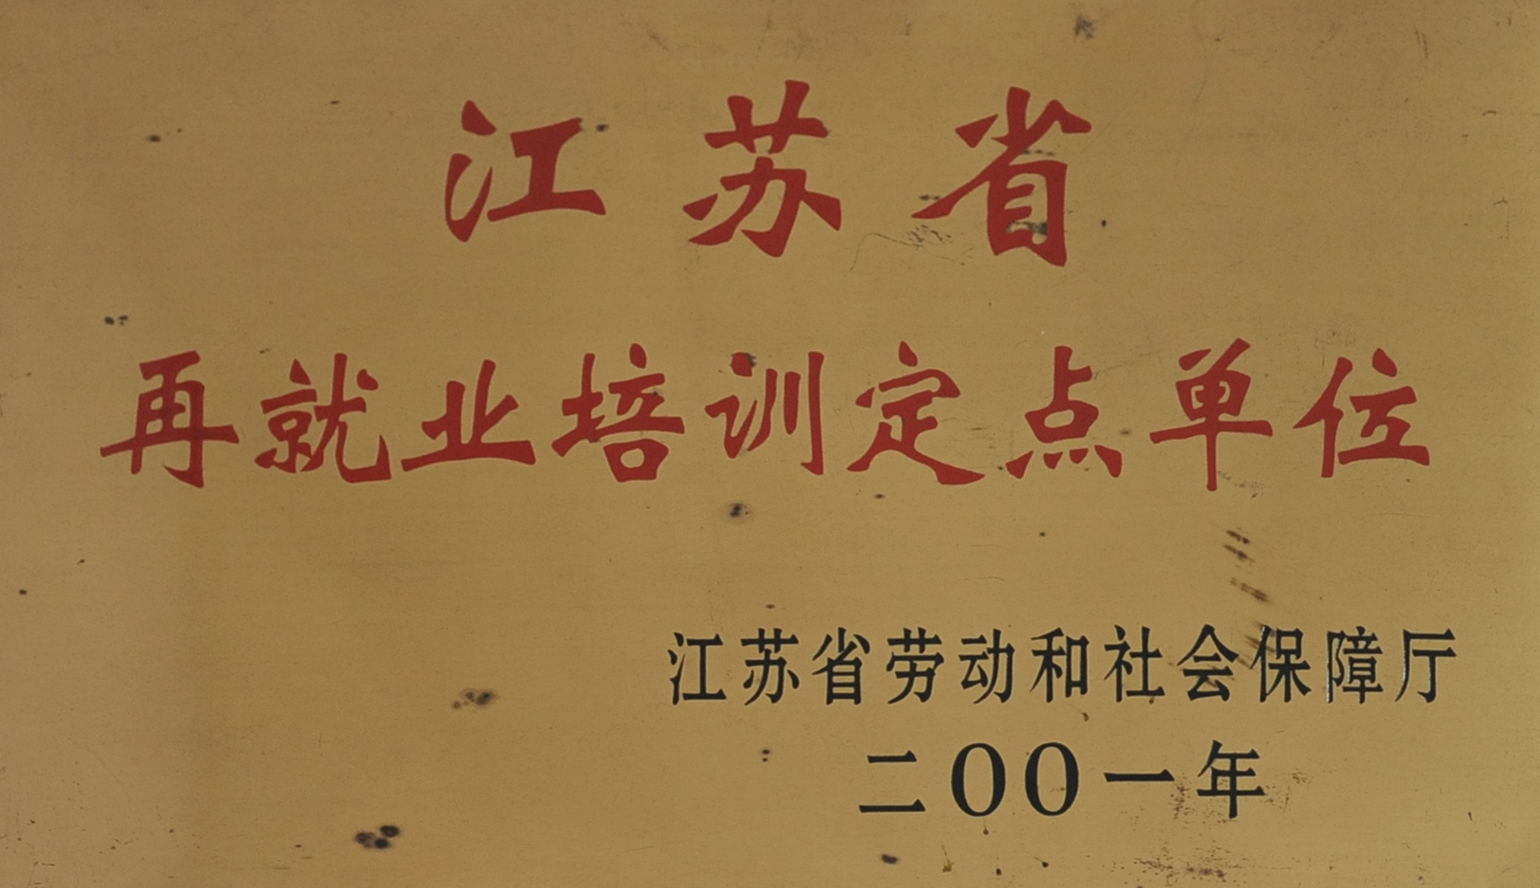 江苏省
再就业培训定点单位
江苏省劳动和社会保障厅
二OO一年